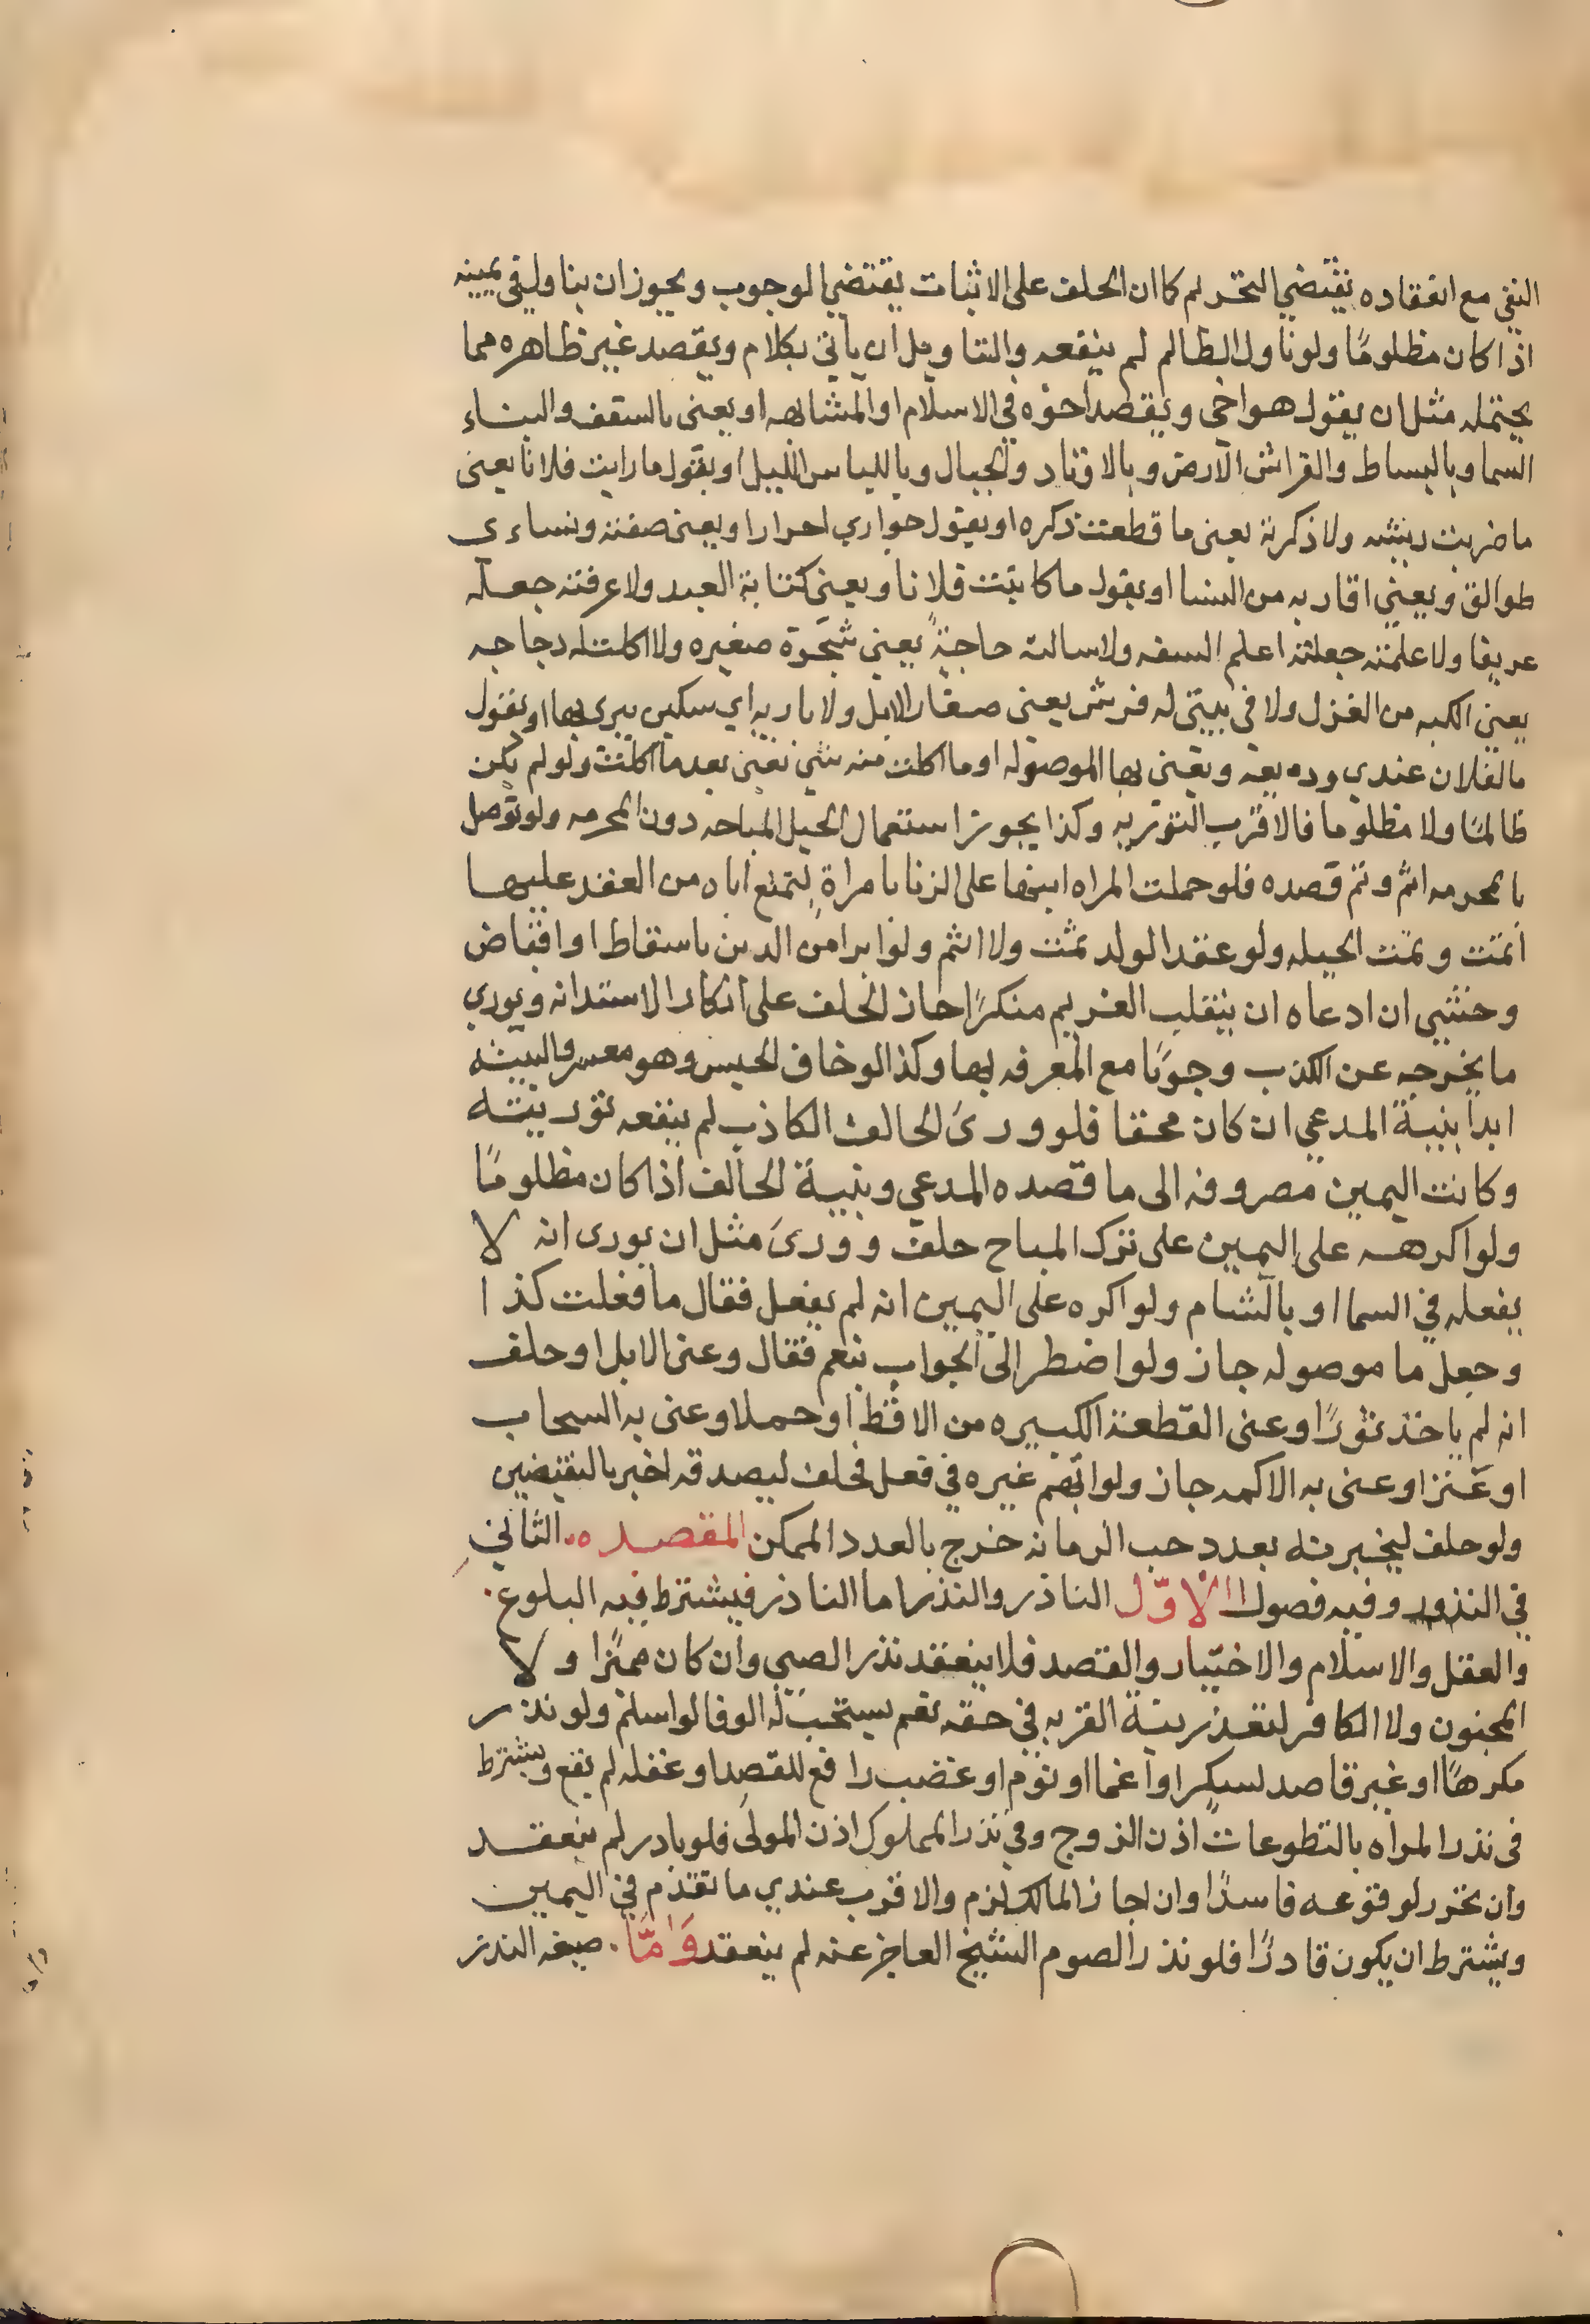 النفي مع انعقاده يقتضي التحريم كما ان الحلف على الاثبات يقتضي الوجوب ويجوز ان يتاول في يمينه
اذا كان مظلومًا ولو تاول الظالم لم ينفعه والتاويل ان ياتي بكلام ويقصد غير ظاهره مما
يحتمله مثل ان يقول هو اخي ويقصد اخوه في الاسلام او المشابهه او يعنى بالسقف والبناء
السما وبالبساط والفراش الارض وبالاوتاد والجبال وباللباس الليل او يقول ما رايت فلانا يعنى
ما ضربت ريته ولا ذكرته يعنى ما قطعت ذكره او يقول جواري احرارا ويعنى سفنه ونساءى
طوالق ويعني اقاربه من النسا او يقول ما كاتبت فلانا ويعني كتابة العبد ولا عرفته جعله
عريفا ولا علمته جعلته اعلم الشفه ولا سالته حاجةً يعني شجرة صغيره ولا اكلت له دجاجه
يعنى الكبه من الغزل ولا في بيتي له فرش يعنى صغار الابل ولا باريه اي سكين يبرى بها او يقول
ما لفلان عندي وديعة ويعني بها الموصوله او ما اكلت منه شي يعنى بعد ما اكلت ولو لم يكن
ظالمًا ولا مظلوما فالاقرب التوريه وكذا يجوز استعمال الحيل المباحه دون المحرمه ولو توصل
بالمحرمه اثم وتم قصده فلو حملت المراه ابنها على الزنا بامراةٍ لتمنع اباه من العقد عليها
اثمت وتمت الحيله ولو عقد الولد تمت ولا اثم ولو ابرا من الدين باسقاط او اقباض
وخشي ان ادعاه ان ينقلب الغريم منكرًا جاز الحلف على انكار الاستدانه ويوري
ما يخرجه عن الكذب وجوبًا مع المعرفه بها وكذا لو خاف الحبس وهو معسر والنيه
ابدا بنية المدعي ان كان محقا فلو ورىَ الحالف الكاذب لم ينفعه توريته
وكانت اليمين مصروفه الى ما قصده المدعي وبنية الحالف اذا كان مظلومًا
ولو اكرهه على اليمين على ترك المباح حلف وورىَ مثل ان يورى انه لا
يفعله في السما او بالشام ولو اكره على اليمين انه لم يفعل فقال ما فعلت كذا
وجعل ما موصوله جاز ولو اضطر الى الجواب بنعم فقال وعنى الابل او حلف
انه لم ياخذ ثورًا وعنى القطعة الكبيره من الاقط او حملا وعنى به السحاب
او عنزا وعنى به الاكمه جاز ولو اتهم غيره في فعل فحلف ليصدقه اخبر بالنقيضين
ولو حلف ليخبرنه بعدد حب الرمانه خرج بالعدد الممكن المقصد ه الثاني
في النذور وفيه فصول الاوّل الناذر والنذر اما الناذر فيشترط فيه البلوغ
والعقل والاسلام والاختيار والقصد فلا ينعقد نذر الصبي وان كان مميزًا ولا
المجنون ولا الكافر لتعذر نية القربه في حقه نعم يستحب له الوفا لو اسلم ولو نذر
مكرهًا او غير قاصد لسكر او اغما او نوم او غضب رافع للقصد او غفله لم يقع ويشترط
فى نذر المراه بالتطوعات اذن الزوج وفي نذر المملوك اذن المولى فلو بادر لم ينعقد
وان تحرر لوقوعه فاسدًا وان اجاز المالك لزم والاقرب عندي ما تقدم في اليمين
ويشترط ان يكون قادرًا فلو نذر الصوم الشيخ العاجز عنه لم ينعقد وَامَّا صيغه النذر